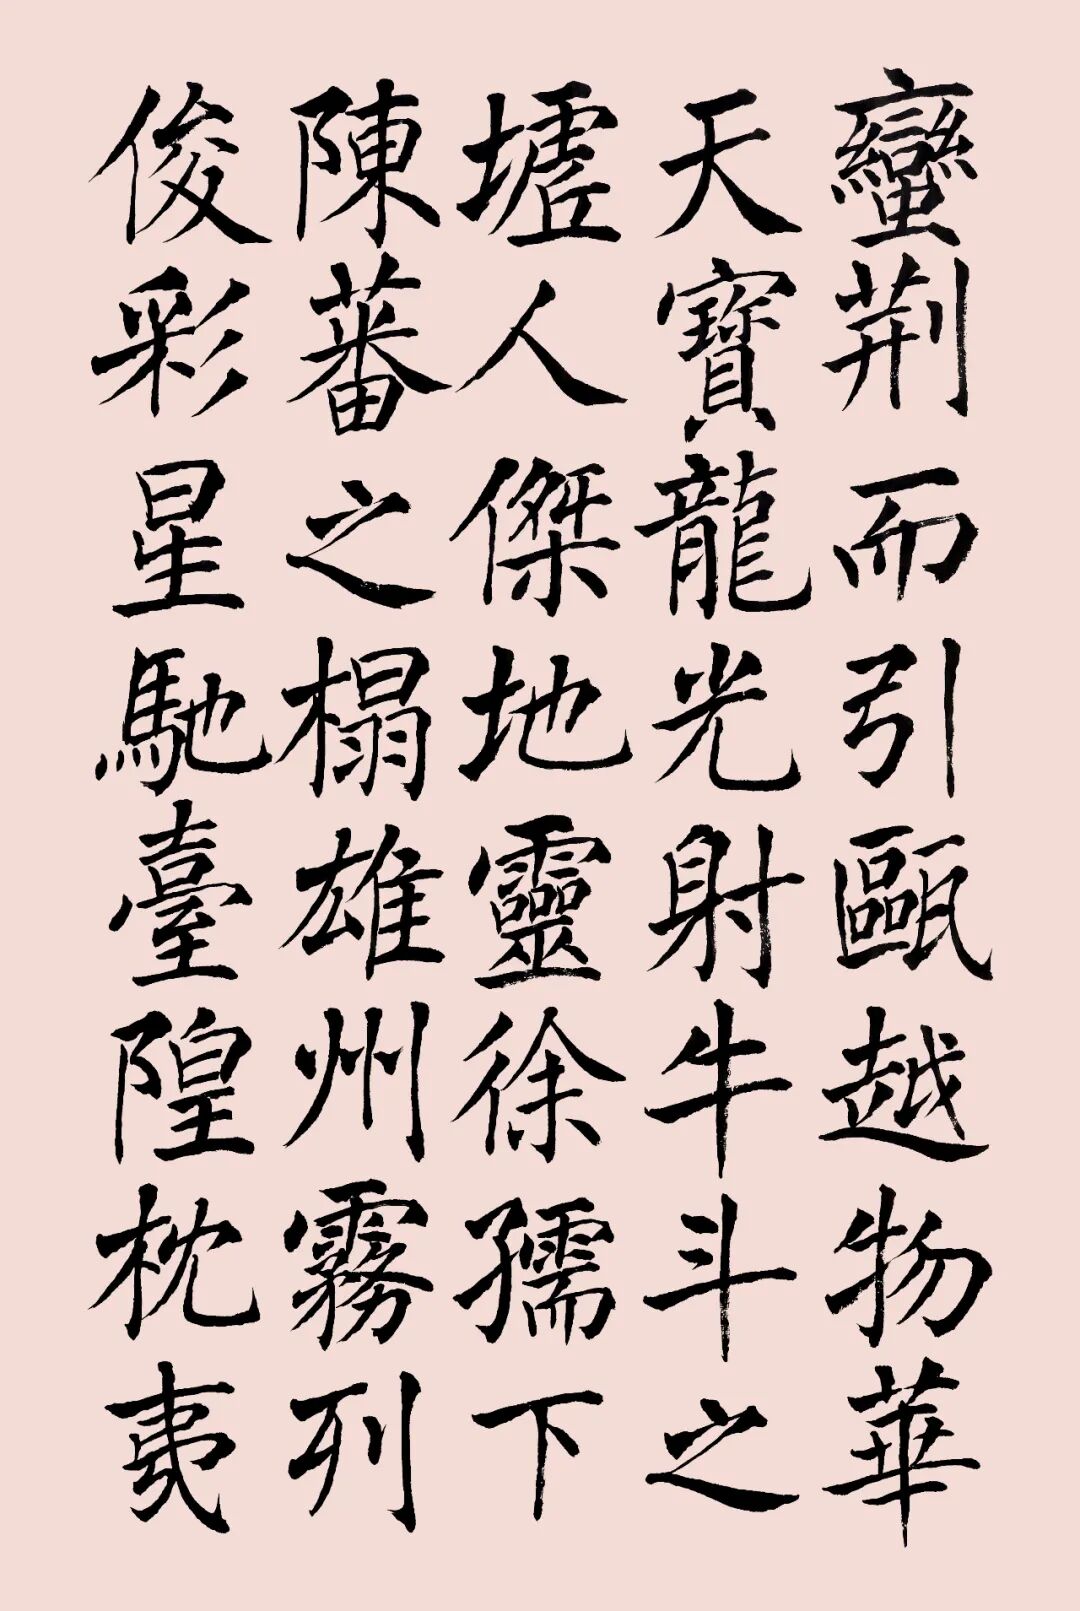 蠻荆而引甌越物華
天寳龍光射牛斗之
墟人傑地靈徐孺下
陳蕃之榻雄州霧列
俊彩星馳臺隍枕夷